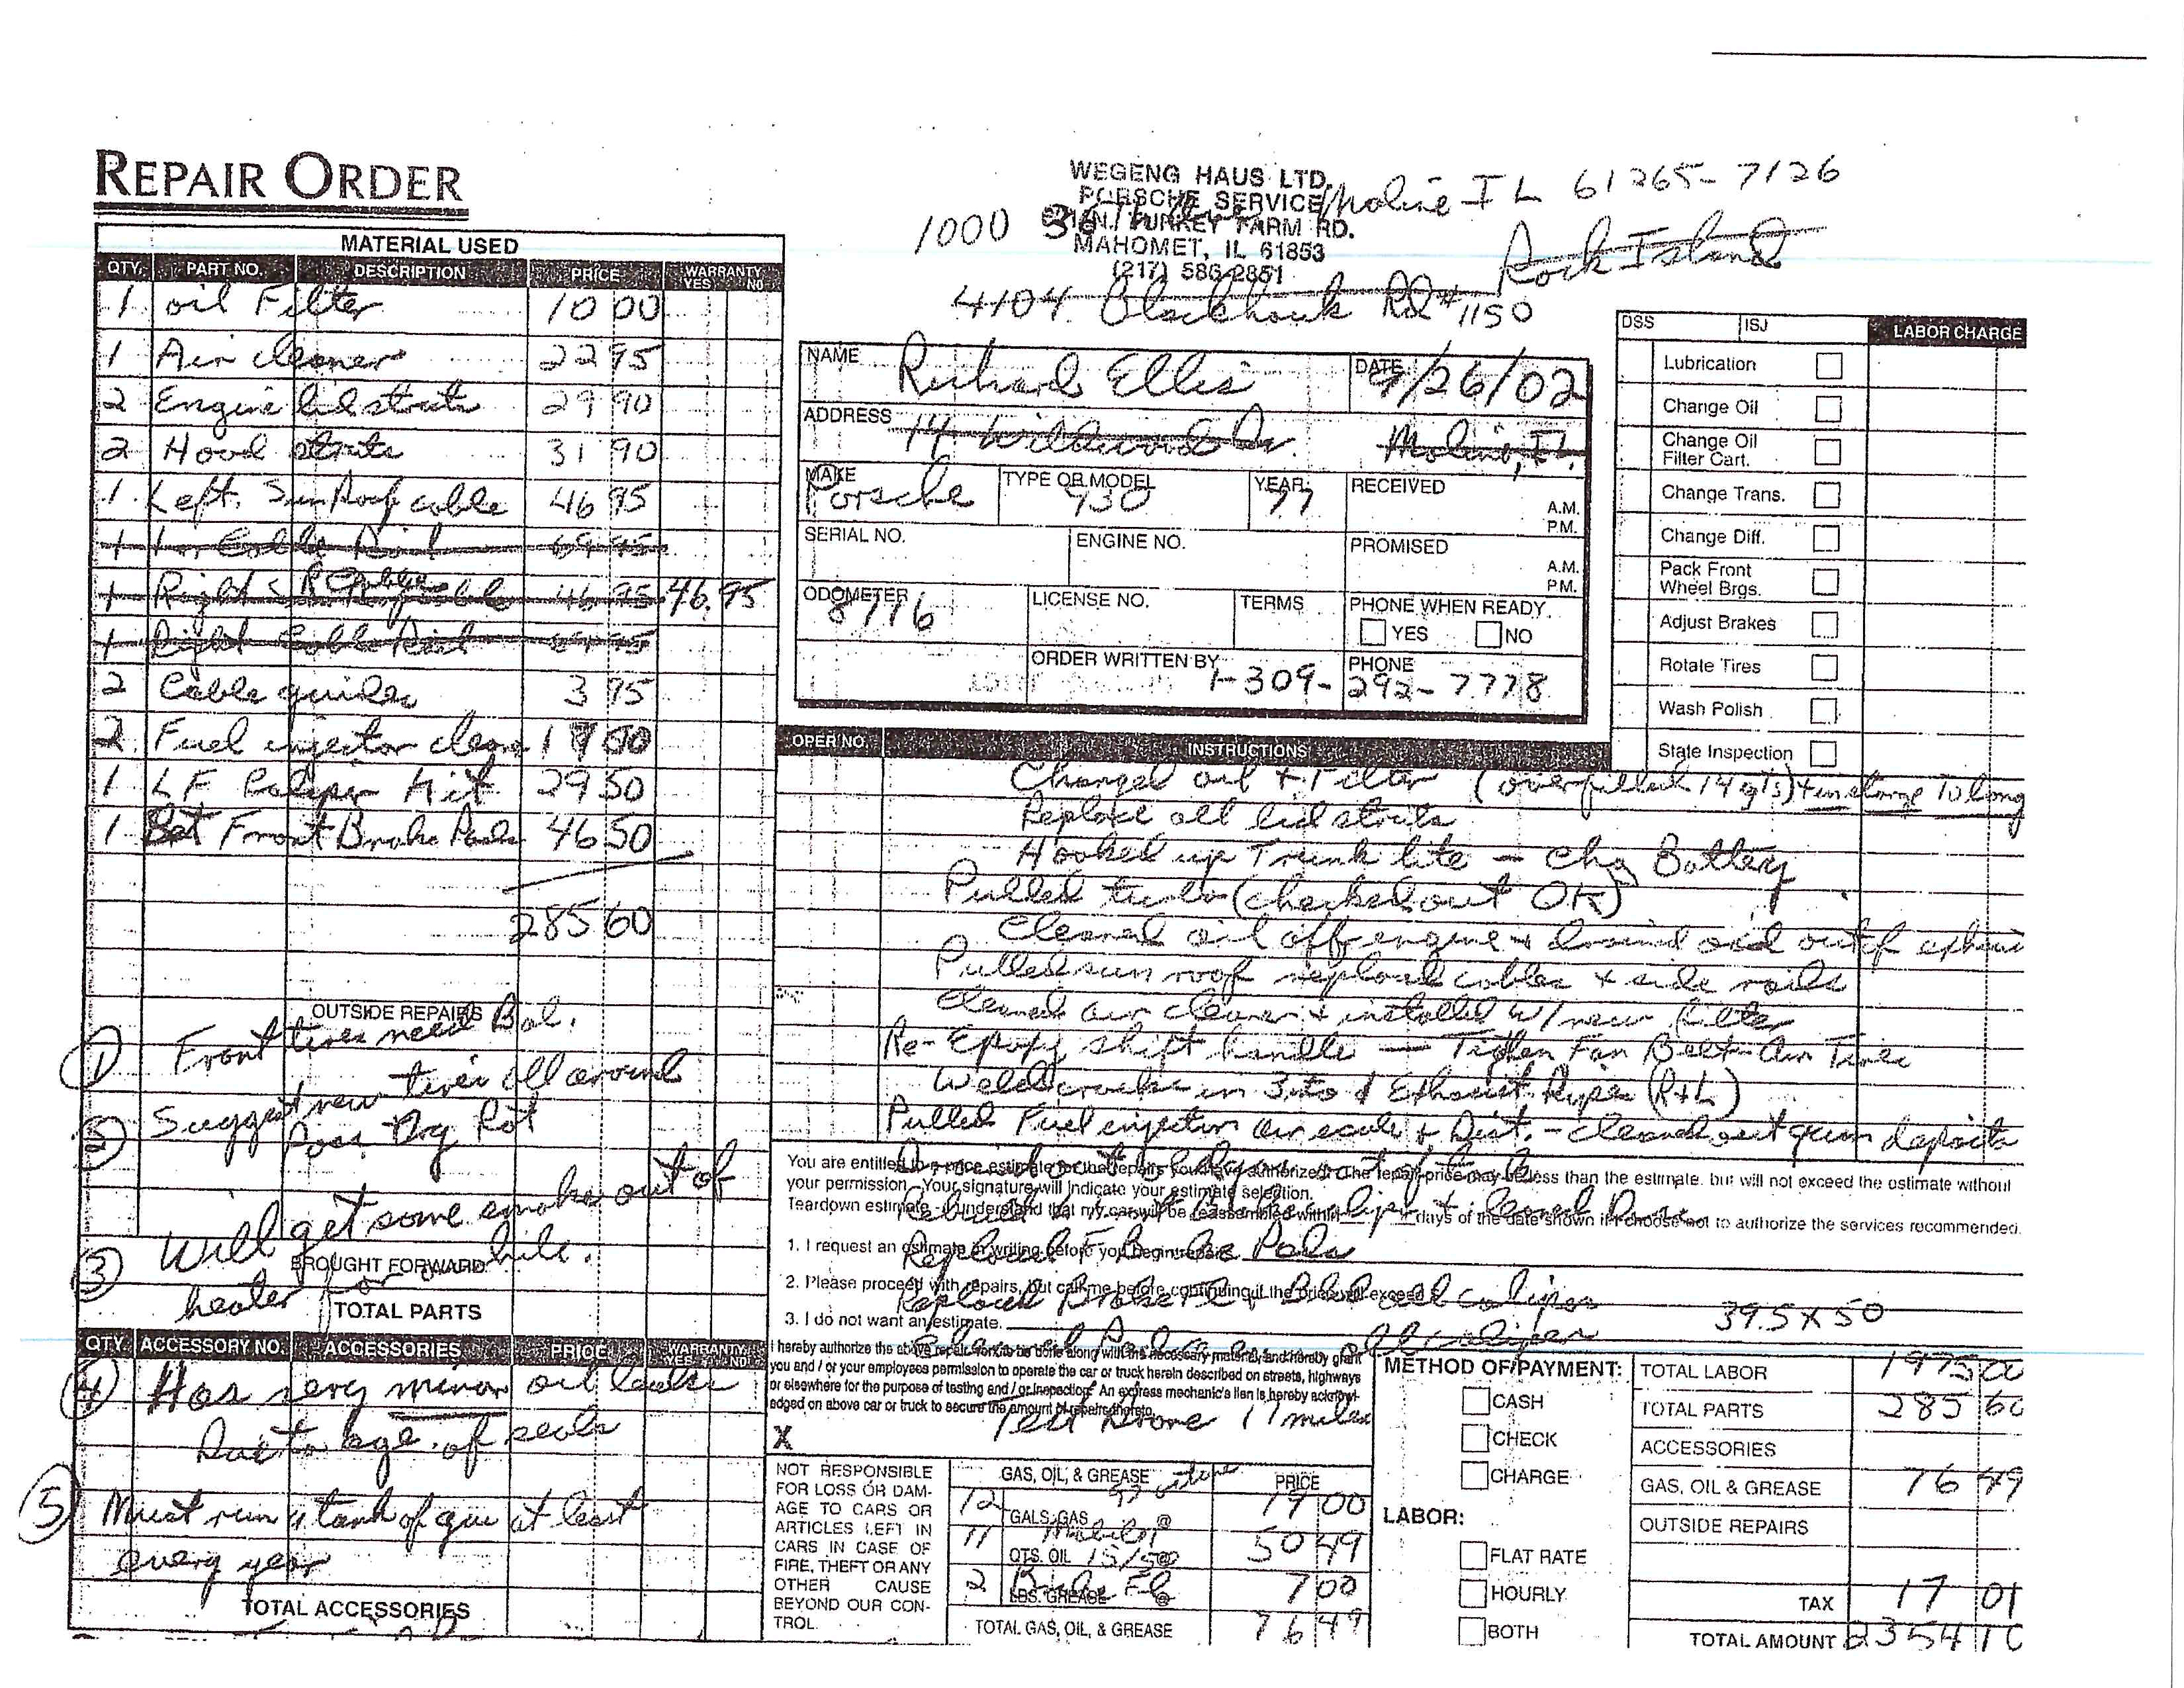 REPAIR ORDER
WEGENG HAUS LTD.
PORSCHE SERVICE
N. TURKEY FARM RD.
MAHOMET, IL 61853
(217) 586-2851
1000 36th Moline IL 61265-7126
Rock Island
4104 Blackhawk Rd #1150
MATERIAL USED
QTY. PART NO. DESCRIPTION PRICE WARRANTY YES NO
1 oil Filter 10 00
1 Air cleaner 22 95
2 Engine lid struts 29 90
2 Hood struts 31 90
1 Left Sun Roof cable 46 95
1 Cable Rail 69 95
1 Right S R Cable 46 95 46.95
1 Right Cable Rail 69 95
2 Cable guides 3 95
2 Fuel injector clean 17 00
1 LF Caliper Kit 29 50
1 Set Front Brake Pads 46 50
285 60
OUTSIDE REPAIRS
① Front tires need Bal.
② Suggest new tires all around
Poss Dry Rot
③ Will get some smoke out of
heater for awhile.
BROUGHT FORWARD
TOTAL PARTS
QTY. ACCESSORY NO. ACCESSORIES PRICE WARRANTY YES NO
④ Has very minor oil leaks
Due to age of seals
⑤ Must run a tank of gas at least
every year
TOTAL ACCESSORIES
NAME Richard Ellis DATE 9/26/02
ADDRESS 14 Wildwood Dr. Moline, IL.
MAKE Porsche TYPE OR MODEL 930 YEAR 77 RECEIVED A.M. P.M.
SERIAL NO. ENGINE NO. PROMISED A.M. P.M.
ODOMETER 8776 LICENSE NO. TERMS PHONE WHEN READY YES NO
ORDER WRITTEN BY PHONE 1-309-292-7778
DSS ISJ LABOR CHARGE
Lubrication
Change Oil
Change Oil Filter Cart.
Change Trans.
Change Diff.
Pack Front Wheel Brgs.
Adjust Brakes
Rotate Tires
Wash Polish
State Inspection
OPER NO. INSTRUCTIONS
Changed oil + Filter (overfilled 14 qts)
Replace all lid struts
Hooked up Trunk lite - chg Battery
Pulled turbo (checked out OK)
Cleaned oil off engine + drained oil out of exhaus
Pulled sun roof replaced cables + side rails
Cleaned air cleaner + installed w/ new filter
Re-Epoxy shift handle — Tighten Fan Belt - Air Tires
Weld cracks in Exhaust Pipes (R+L)
Pulled Fuel injection + Dist. - cleaned out gum deposits
You are entitled to a price estimate for the repairs you have authorized. The repair price may be less than the estimate. but will not exceed the estimate without
your permission. Your signature will indicate your estimate selection.
Teardown estimate - I understand that my car will be reassembled within days of the date shown if I choose not to authorize the services recommended.
Rebuild caliper + cleaned
1. I request an estimate in writing before you begin repairs.
Replaced F Brake Pads
2. Please proceed with repairs, but call me before continuing if the price will exceed $
Replaced Brake Fl + Bled all calipers
3. I do not want an estimate.
39.5 x 50
Cleaned all calipers
I hereby authorize the above repair work to be done along with the necessary material, and hereby grant
you and / or your employees permission to operate the car or truck herein described on streets, highways
or elsewhere for the purpose of testing and / or inspection. An express mechanic's lien is hereby acknowl-
edged on above car or truck to secure the amount of repairs thereto.
Test Drove 11 miles
X
NOT RESPONSIBLE
FOR LOSS OR DAM-
AGE TO CARS OR
ARTICLES LEFT IN
CARS IN CASE OF
FIRE, THEFT OR ANY
OTHER CAUSE
BEYOND OUR CON-
TROL
GAS, OIL, & GREASE PRICE
12 GALS. GAS @ 19 00
11 QTS. OIL Mobil 15/50 @ 50 49
2 LBS. GREASE Brake Fl @ 7 00
TOTAL GAS, OIL, & GREASE 76 49
METHOD OF PAYMENT:
CASH
CHECK
CHARGE
LABOR:
FLAT RATE
HOURLY
BOTH
TOTAL LABOR 1975 00
TOTAL PARTS 285 60
ACCESSORIES
GAS, OIL & GREASE 76 49
OUTSIDE REPAIRS
TAX 17 01
TOTAL AMOUNT 2354 10